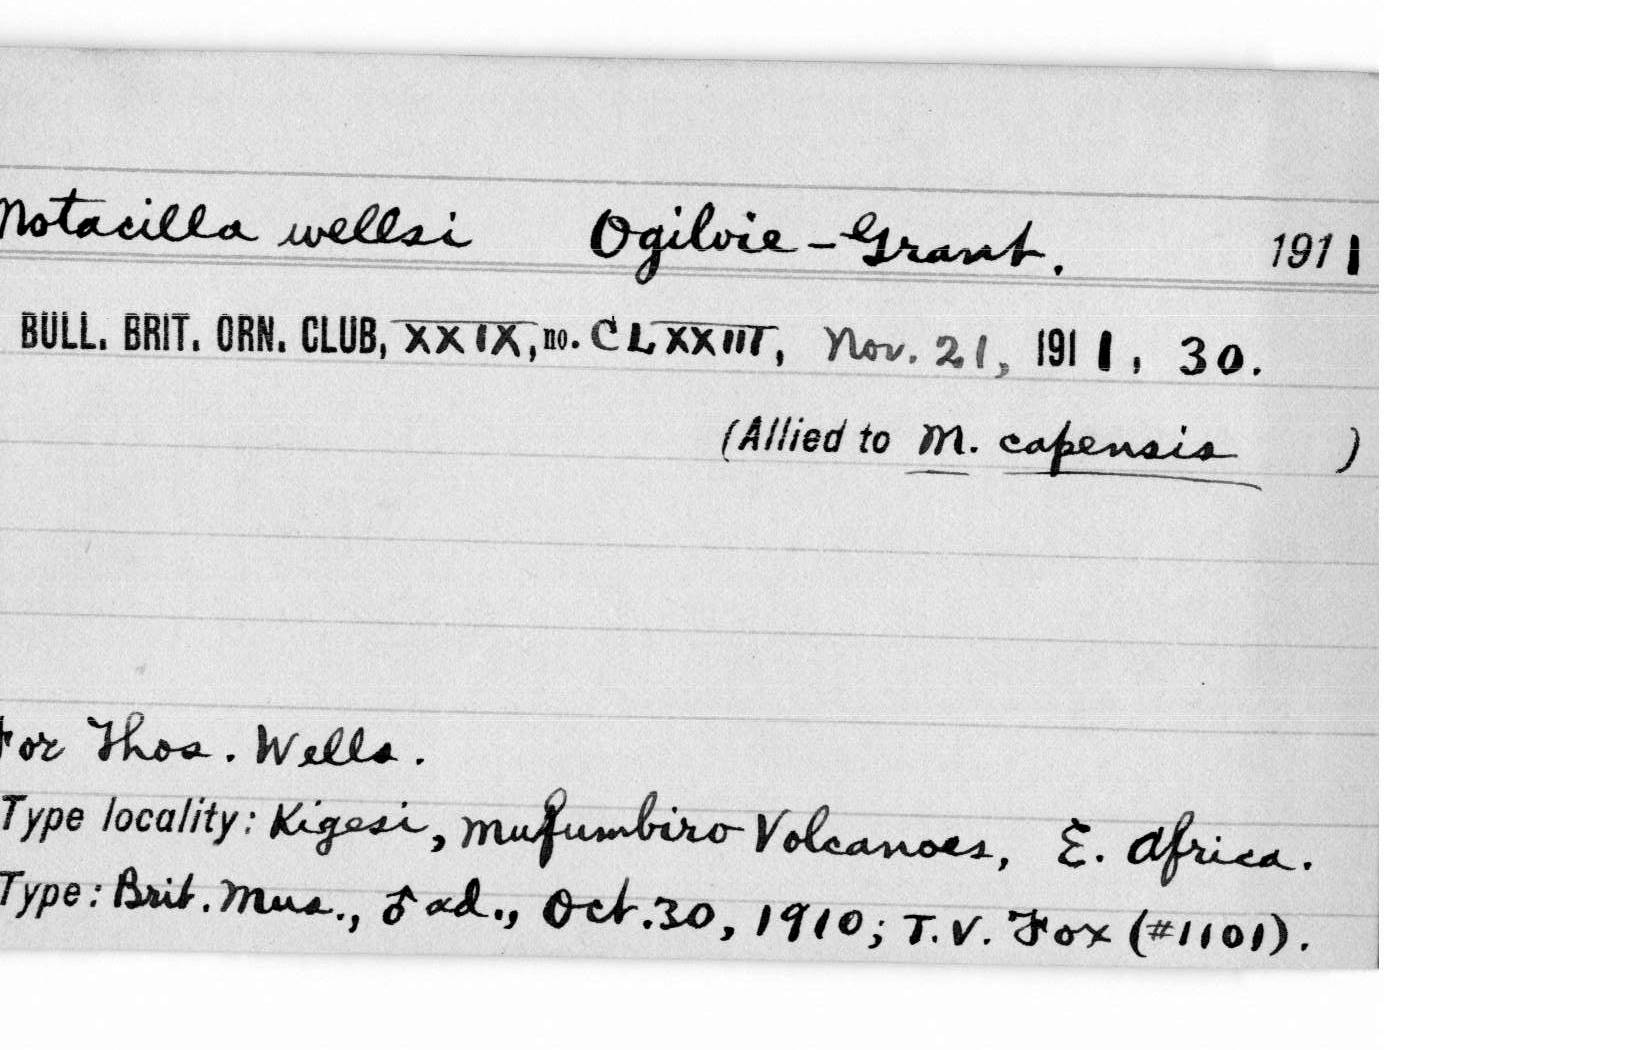 Motacilla wellsi Ogilvie-Grant. 1911
BULL. BRIT. ORN. CLUB, XXIX, no. CLXXIII, Nov. 21, 1911, 30.
(Allied to M. capensis )
For Thos. Wells.
Type locality: Kigesi, Mufumbiro Volcanoes, E. Africa.
Type: Brit. Mus., ♂ ad., Oct. 30, 1910; T. V. Fox (#1101).